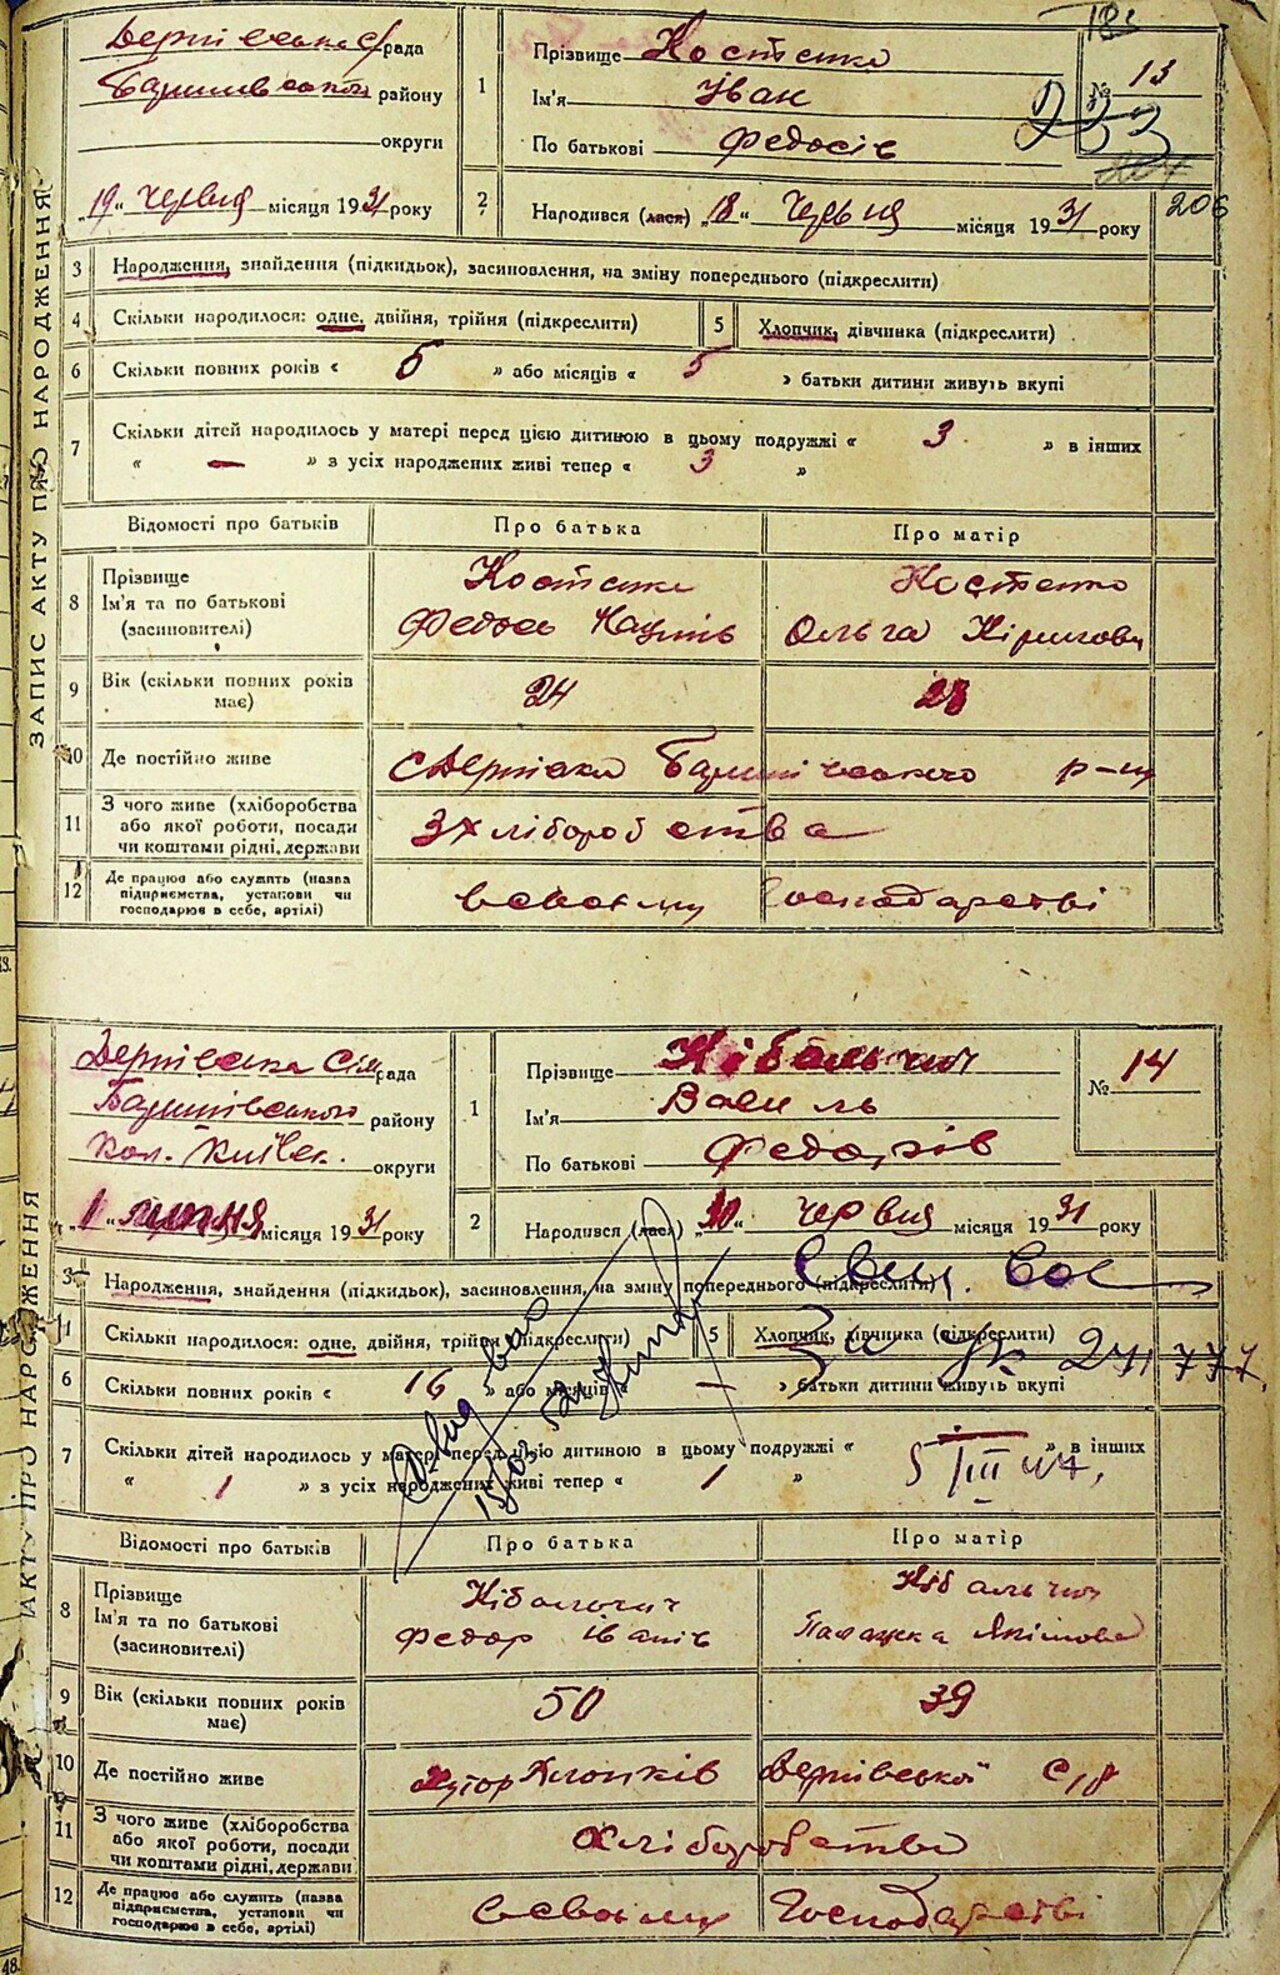 рада
району
округи
„19“ Червня місяця 1931 року
1
Прізвище Костенко
Ім'я Іван
По батькові Федосів
№ 13
233
206
2
Народився (лася) „18“ Червня місяця 1931 року
3 Народження, знайдення (підкидьок), засиновлення, на зміну попереднього (підкреслити)
4 Скільки народилося: одне, двійня, трійня (підкреслити)
5 Хлопчик, дівчинка (підкреслити)
6 Скільки повних років « 5 » або місяців « 5 » батьки дитини живуть вкупі
7 Скільки дітей народилось у матері перед цією дитиною в цьому подружжі « 3 » в інших
« — » з усіх народжених живі тепер « 3 »
Відомості про батьків Про батька Про матір
8 Прізвище
Ім'я та по батькові
(засиновителі)
Костенко
Федось
Костенко
Ольга
9 Вік (скільки повних років
має)
24 28
10 Де постійно живе
р-ну
11 З чого живе (хліборобства
або якої роботи, посади
чи коштами рідні, держави
З хліборобства
12 Де працює або служить (назва
підприємства, установи чи
господарює в себе, артілі)
в своєму господарстві
ЗАПИС АКТУ ПРО НАРОДЖЕННЯ
рада
Баришівського району
округи
„1“ липня місяця 1931 року
1
Прізвище Кібальчич
Ім'я Василь
По батькові Федорів
№ 14
2
Народився (лася) „30“ червня місяця 1931 року
3 Народження, знайдення (підкидьок), засиновлення, на зміну попереднього (підкреслити)
Скільки народилося: одне, двійня, трійня (підкреслити)
5 Хлопчик, дівчинка (підкреслити)
6 Скільки повних років « 16 » або місяців « — » батьки дитини живуть вкупі
7 Скільки дітей народилось у матері перед цією дитиною в цьому подружжі « — » в інших
« 1 » з усіх народжених живі тепер « 1 »
Відомості про батьків Про батька Про матір
8 Прізвище
Ім'я та по батькові
(засиновителі)
Кібальчич
Федор Іванів
Кібальчич
Палажка Якімова
9 Вік (скільки повних років
має)
50 39
10 Де постійно живе
хутор
11 З чого живе (хліборобства
або якої роботи, посади
чи коштами рідні, держави
Хліборобство
12 Де працює або служить (назва
підприємства, установи чи
господарює в себе, артілі)
в своєму Господарстві
АКТУ ПРО НАРОДЖЕННЯ